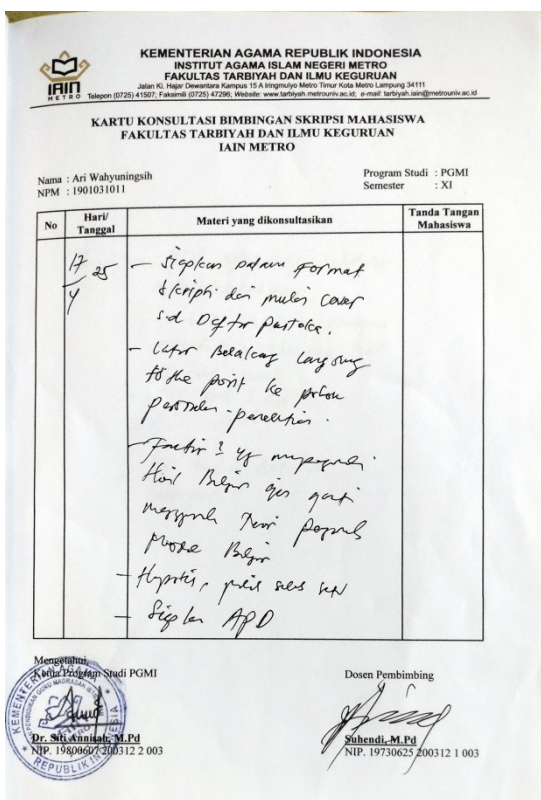 KEMENTERIAN AGAMA REPUBLIK INDONESIA
INSTITUT AGAMA ISLAM NEGERI METRO
FAKULTAS TARBIYAH DAN ILMU KEGURUAN
Jalan Ki. Hajar Dewantara Kampus 15 A Iringmulyo Metro Timur Kota Metro Lampung 34111
Telepon (0725) 41507; Faksimili (0725) 47296; Website: www.tarbiyah.metrouniv.ac.id; e-mail: tarbiyah.iain@metrouniv.ac.id
IAIN
METRO
KARTU KONSULTASI BIMBINGAN SKRIPSI MAHASISWA
FAKULTAS TARBIYAH DAN ILMU KEGURUAN
IAIN METRO
Nama : Ari Wahyuningsih
NPM : 1901031011
Program Studi : PGMI
Semester : XI
No
Hari/
Tanggal
Materi yang dikonsultasikan
Tanda Tangan
Mahasiswa
17/4 25
- Siapkan dalam Format
Skripsi dari mulai cover
s.d Daftar Pustaka.
- Latar Belakang langsung
to the point ke pokok
penelitian.
- Faktor2 yg mempengaruhi
Hasil Belajar ganti
Teori
Belajar
- Hipotesis,
- Siapkan APD
Mengetahui,
Ketua Program Studi PGMI
Dr. Siti Annisah, M.Pd
NIP. 19800607 200312 2 003
KEMENTERIAN AGAMA
REPUBLIK INDONESIA
Dosen Pembimbing
Suhendi, M.Pd
NIP. 19730625 200312 1 003